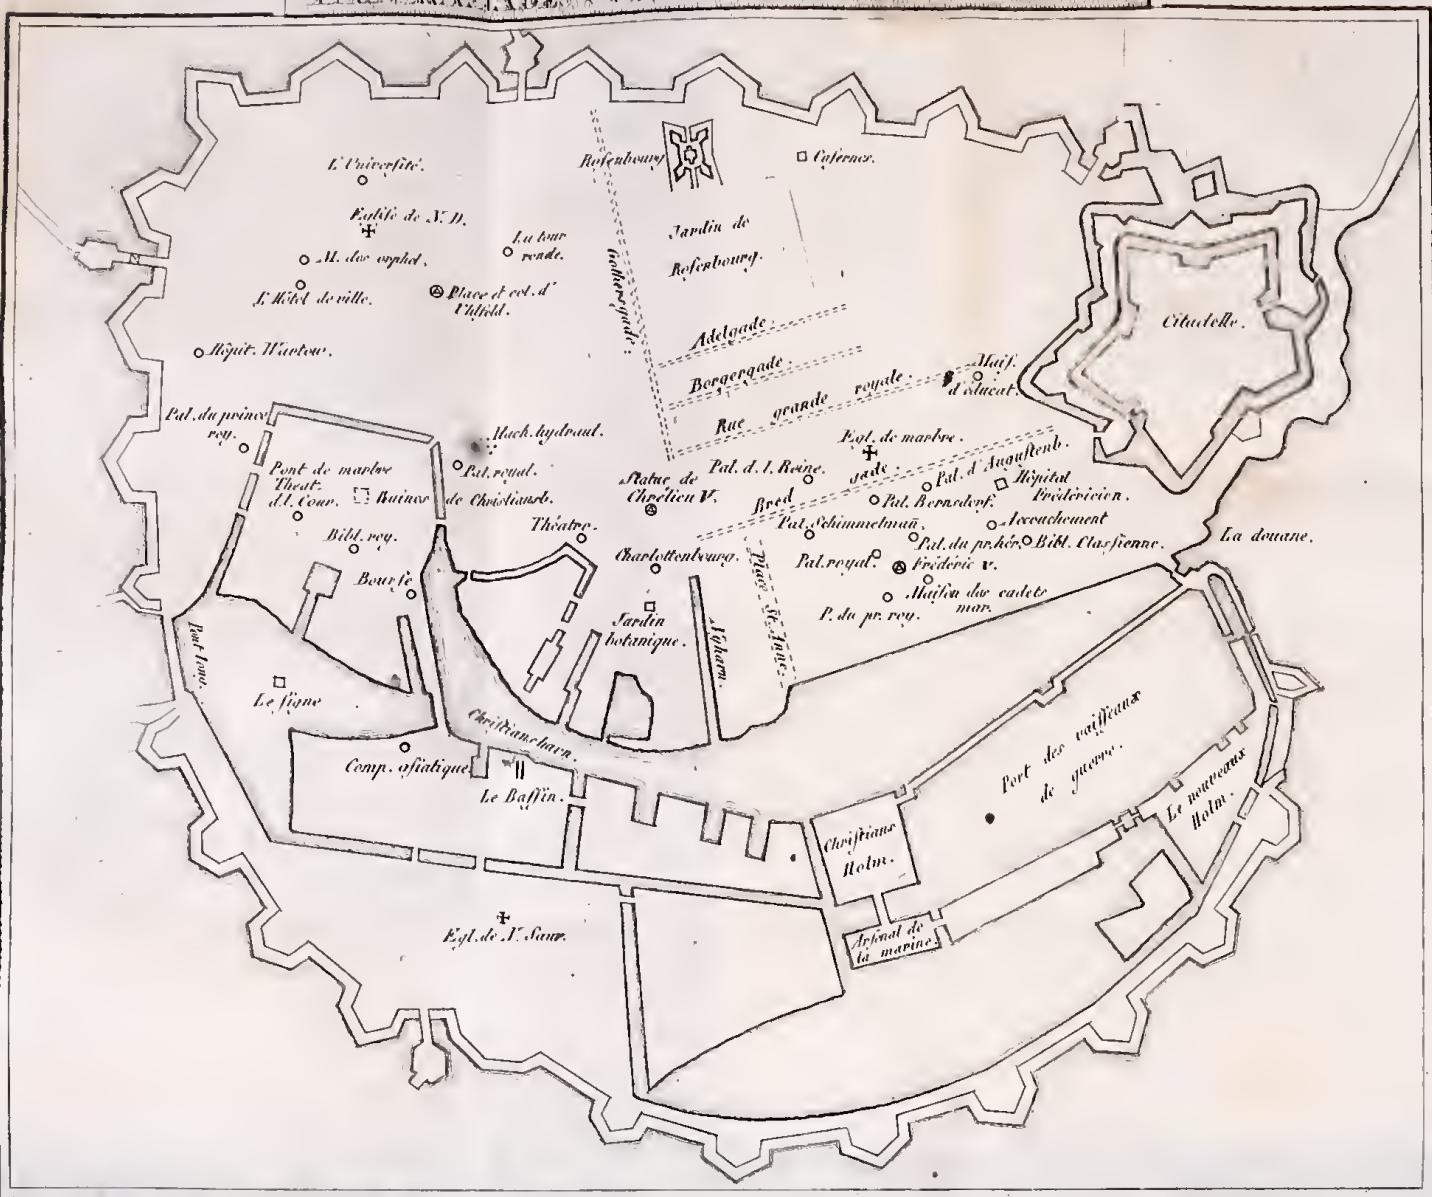 L'Université.
Eglise de N. D.
M. des orphel.
L'Hôtel de ville.
La tour
ronde.
Place et col. d'
Uhlfeld.
Hôpit. Wartow.
Rosenbourg
Casernes.
Jardin de
Rosenbourg.
Gothersgade.
Adelgade.
Borgergade.
Rue grande royale.
Mais.
d'éducat.
Citadelle.
Pal. du prince
roy.
Mach. hydraul.
Pal. royal.
Pont de marbre
Theat.
d. l. Cour.
Ruines de Christiansb.
Bibl. roy.
Bourse
Théatre.
Statue de
Chrétien V.
Charlottenbourg.
Jardin
botanique.
Pal. d. l. Reine.
Egl. de marbre.
Bred gade.
Pal. d'Augustenb.
Hôpital
Frédericien.
Pal. Bernsdorf.
Pal. Schimmelmañ.
Accouchement
Pal. du pr. hér.
Bibl. Classienne.
Pal. royal.
Fréderic V.
Maison des cadets
mar.
P. du pr. roy.
La douane.
Place St. Anne.
Nyhavn.
Pont long.
Le signe
Christianshavn.
Comp. asiatique
Le Bassin.
Christians
Holm.
Port des vaisseaux
de guerre.
Le nouveaux
Holm.
Arsenal de
la marine.
Egl. de St. Sauv.